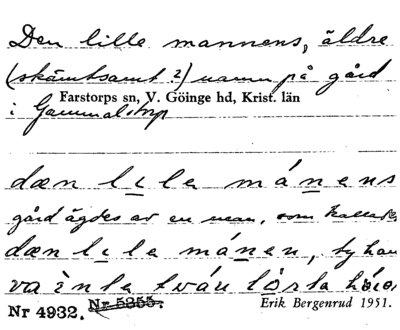 Den lille mannens, äldre
(skämtsamt?) namn på gård
Farstorps sn, V. Göinge hd, Krist. län
i Gammalstorp
dæn lịlạ mánens
gård ägdes av en man, som kallades
dæn lịla mánen, ty han
va inte två
Nr 4932. Nr 5355. Erik Bergenrud 1951.